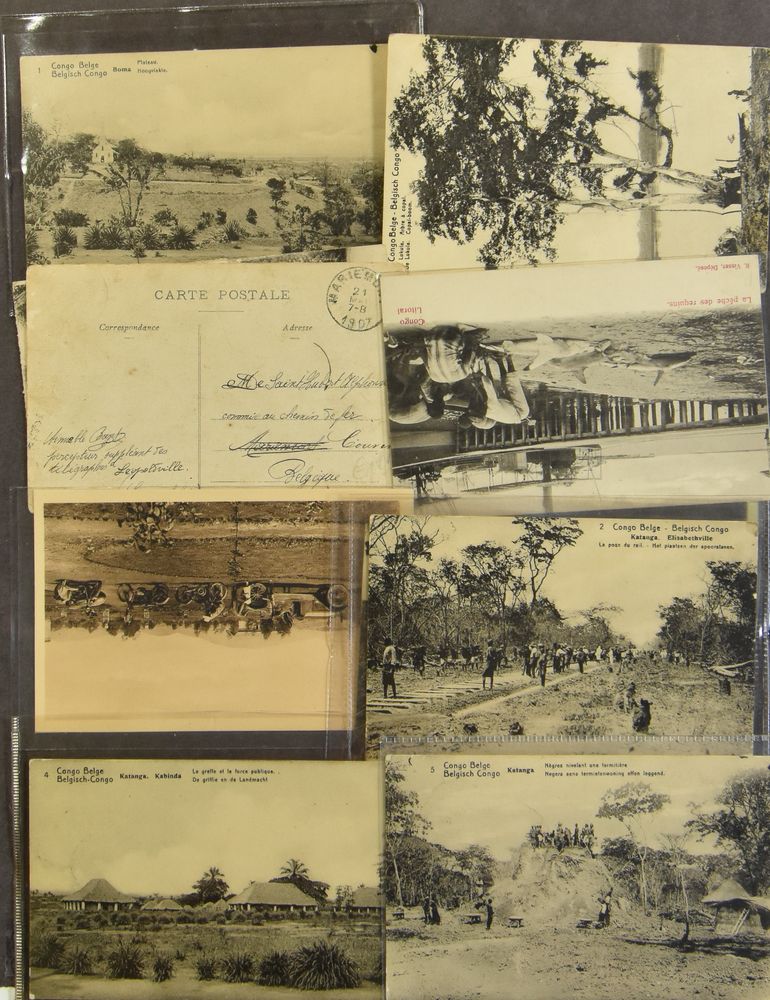 1 Congo Belge
Belgisch Congo Boma Plateau.
Hoogvlakte.
Congo Belge - Belgisch Congo
Lukula. Arbre à copal.
de Lukula. Copal-boom.
CARTE POSTALE
Correspondance
Adresse
MARIEMO
21
7-8
1907
Me Saint Hubert Alphonse
commis au chemin de fer
Mariemont
Belgique
percepteur suppléant des
télégraphes Leopoldville.
R. Visser, Dépose.
La pêche des requins.
Congo
Litoral
2 Congo Belge - Belgisch Congo
Katanga. Elisabethville
La pose du rail. - Het plaatsen der spoorstaven.
4 Congo Belge
Belgisch-Congo Katanga. Kabinda
Le greffe et la force publique.
De griffie en de Landmacht
5 Congo Belge
Belgisch Congo Katanga
Nègres nivelant une termitière
Negers eene termietenwoning effen leggend.